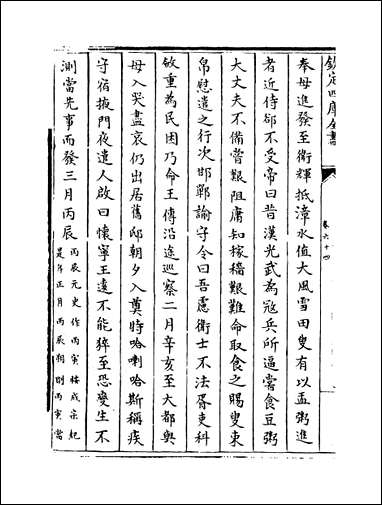 欽定四庫全書
卷六十四
奉母進發至衛輝抵漳水值大風雪田叟有以盂粥進
者近侍卻不受帝曰昔漢光武為寇兵所逼嘗食豆粥
大丈夫不備嘗艱阻庸知稼穡艱難命取食之賜叟束
帛慰遣之行次邯鄲諭守令曰吾慮衛士不法胥吏科
斂重為民困乃命王傅沿途巡察二月辛亥至大都與
母入哭盡哀仍出居舊邸朝夕入奠時哈喇哈斯稱疾
守宿掖門夜遣人啟曰懷寧王遠不能猝至恐變生不
測當先事而發三月丙辰
丙辰元史作丙寅按成宗紀
是年正月丙辰朔則丙寅當